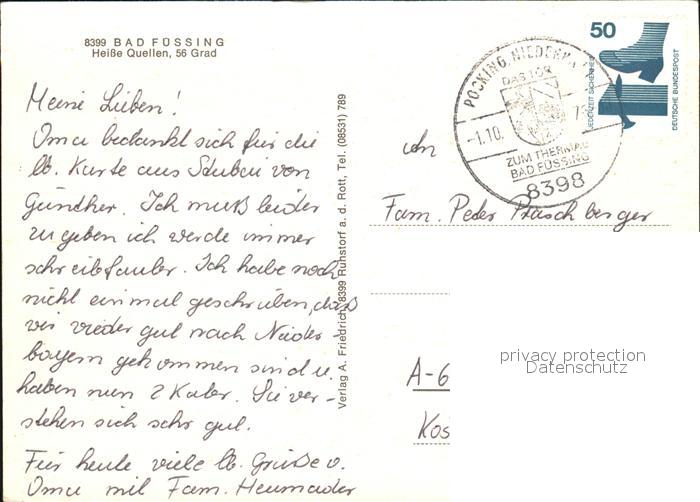 8399 BAD FÜSSING
Heiße Quellen, 56 Grad
Meine Lieben!
Oma bedankt sich für die
lb. Karte aus Stubai von
Günther. Ich muß leider
zugeben ich werde immer
schreibfauler. Ich habe noch
nicht einmal geschrieben, daß
wir wieder gut nach Nieder-
bayern gekommen sind u.
haben nun 2 Kater. Sie ver-
stehen sich sehr gut.
Für heute viele lb. Grüße v.
Oma mit Fam. Heumader
Verlag A. Friedrich, 8399 Ruhstorf a. d. Rott, Tel. (08531) 789
50
JEDERZEIT SICHERHEIT
DEUTSCHE BUNDESPOST
POCKING, NIEDERB
DAS TOR
-1.10.
ZUM THERMAL
BAD FÜSSING
8398
An
Fam. Peter Praschberger
privacy protection
Datenschutz
A-6
Kos